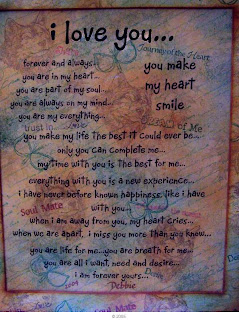 i love you...
Journey of the Heart
forever and always...
you are in my heart...
you are part of my soul...
you are always on my mind...
you are my everything...
you make
my heart
smile
trust in
of Me
you make my life the best it could ever be...
only you can complete me...
my time with you is the best for me...
everything with you is a new experience...
i have never before known happiness like i have
Soul Mate
with you...
when i am away from you, my heart cries...
when we are apart, i miss you more than you know...
you are life for me...you are breath for me...
you are all i want, need and desire...
i am forever yours...
Debbie
Soul Mate